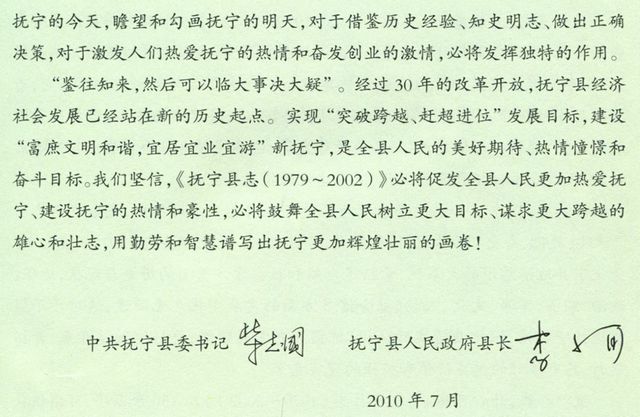 抚宁的今天，瞻望和勾画抚宁的明天，对于借鉴历史经验、知史明志、做出正确
决策，对于激发人们热爱抚宁的热情和奋发创业的激情，必将发挥独特的作用。
“鉴往知来，然后可以临大事决大疑”。经过30年的改革开放，抚宁县经济
社会发展已经站在新的历史起点。实现“突破跨越、赶超进位”发展目标，建设
“富庶文明和谐，宜居宜业宜游”新抚宁，是全县人民的美好期待、热情憧憬和
奋斗目标。我们坚信，《抚宁县志（1979～2002）》必将促发全县人民更加热爱抚
宁、建设抚宁的热情和豪性，必将鼓舞全县人民树立更大目标、谋求更大跨越的
雄心和壮志，用勤劳和智慧谱写出抚宁更加辉煌壮丽的画卷！
中共抚宁县委书记 抚宁县人民政府县长
2010年7月